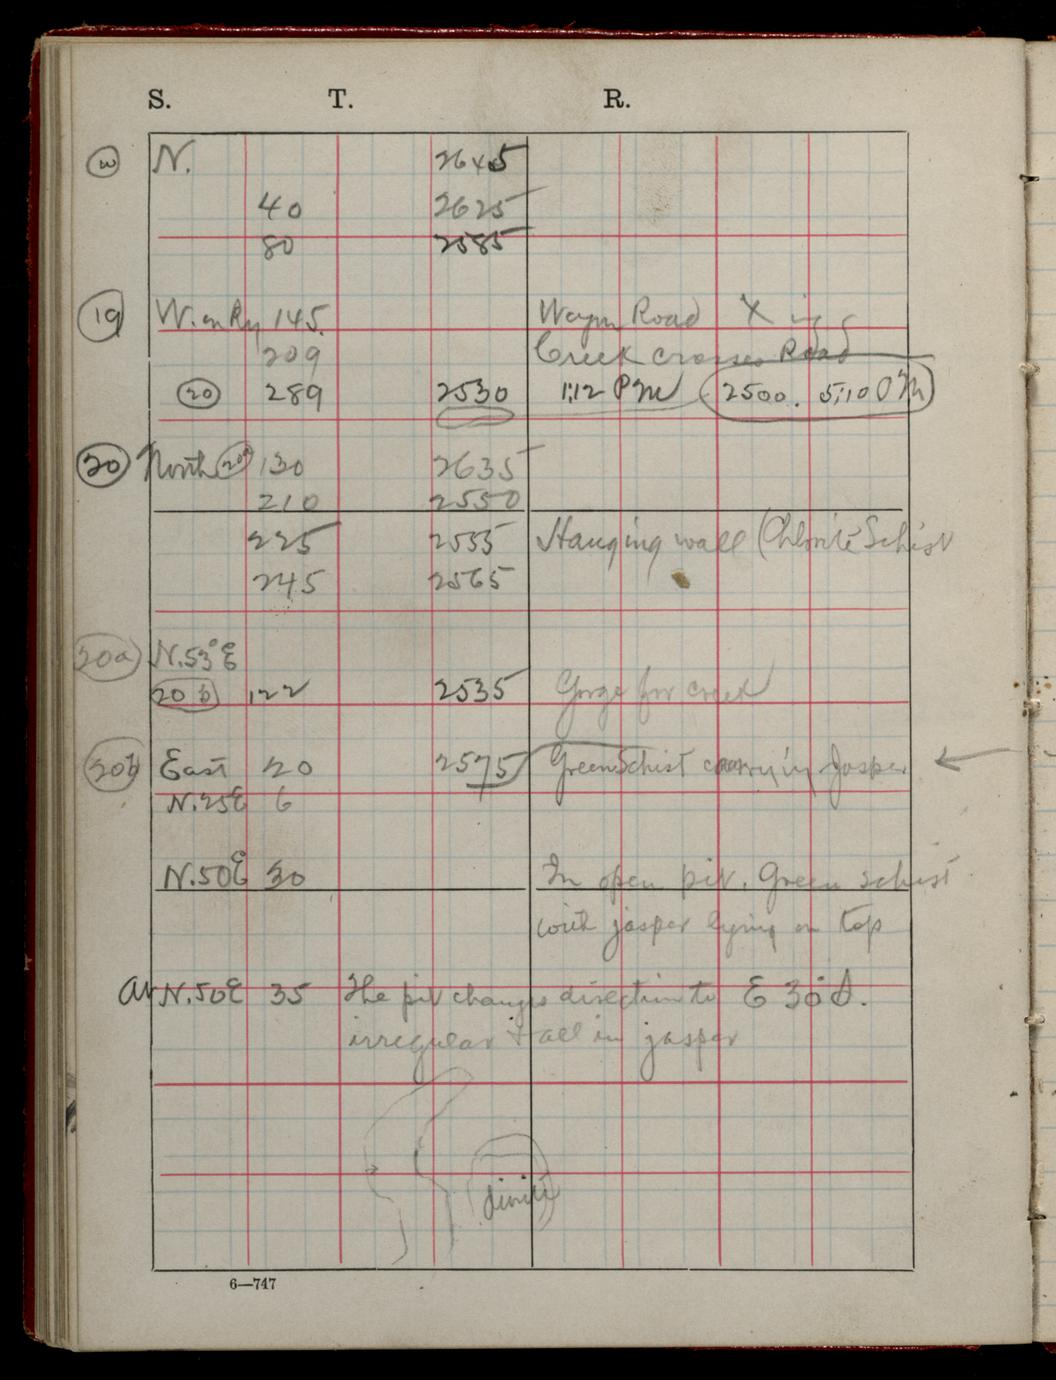 S. T. R.
N. 2645
40 2625
80 2585
19 W. on Ry 145. Wagon Road X ing
209 Creek crosses Road
20 289 2530 1:12 PM 2500. 5:10 PM
20 North 20a 130 2635
210 2550
225 2555 Hanging wall (Chlorite Schist
245 2565
20a N. 53° E
20 b 122 2535 Gorge for creek
20b East 20 2575 Green Schist carrying Jasper
N. 25 E 6
N. 50 E 30 In open pit. Green schist
with jasper lying on top
At N. 50 E 35 The pit changes direction to E 30° S.
irregular & all in jasper
diorite
6—747